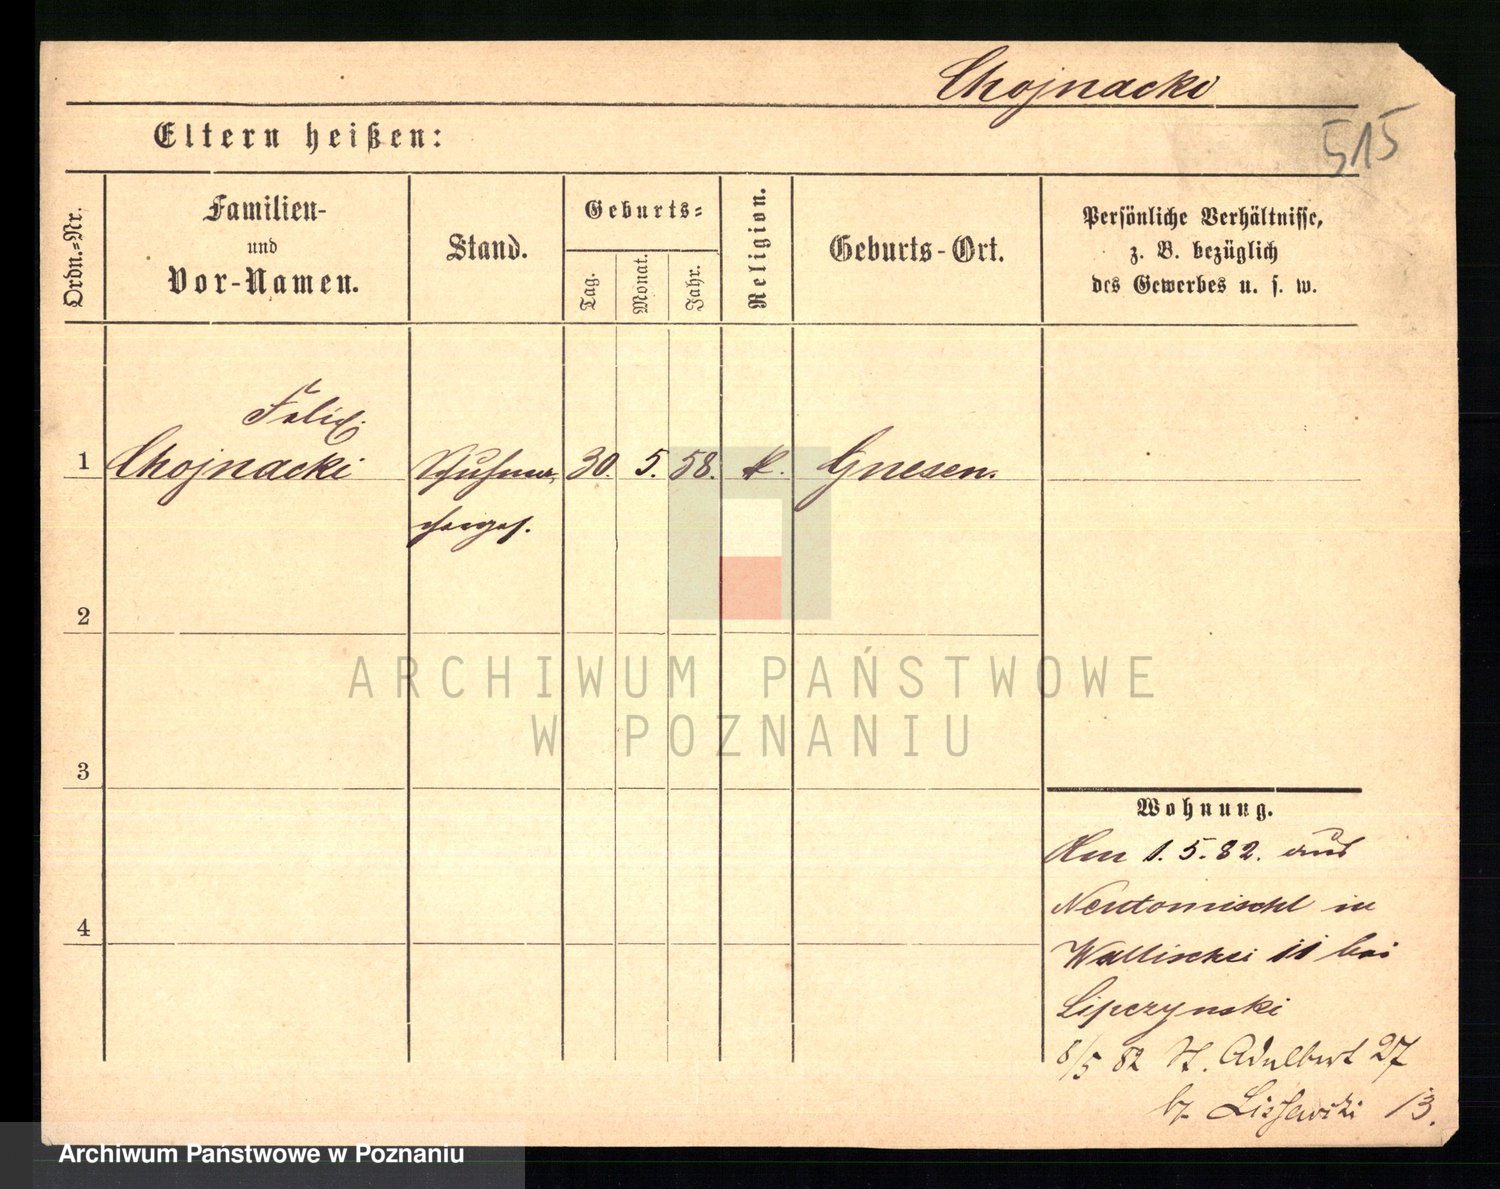 Chojnacki
515
Eltern heißen:
Ordn.-Nr.
Familien-
und
Vor-Namen.
Stand.
Geburts-
Tag.
Monat.
Jahr.
Religion.
Geburts-Ort.
Persönliche Verhältnisse,
z. B. bezüglich
des Gewerbes u. s. w.
Felix
1 Chojnacki Schuhma- 30. 5. 58. k. Gnesen.
cherges.
2
3
4
ARCHIWUM PAŃSTWOWE
W POZNANIU
Wohnung.
Am 1. 5. 82. aus
Neutomischl in
Wallischei 11 bei
Lipczynski
8/5 82 St. Adalbert 27
13.
Archiwum Państwowe w Poznaniu